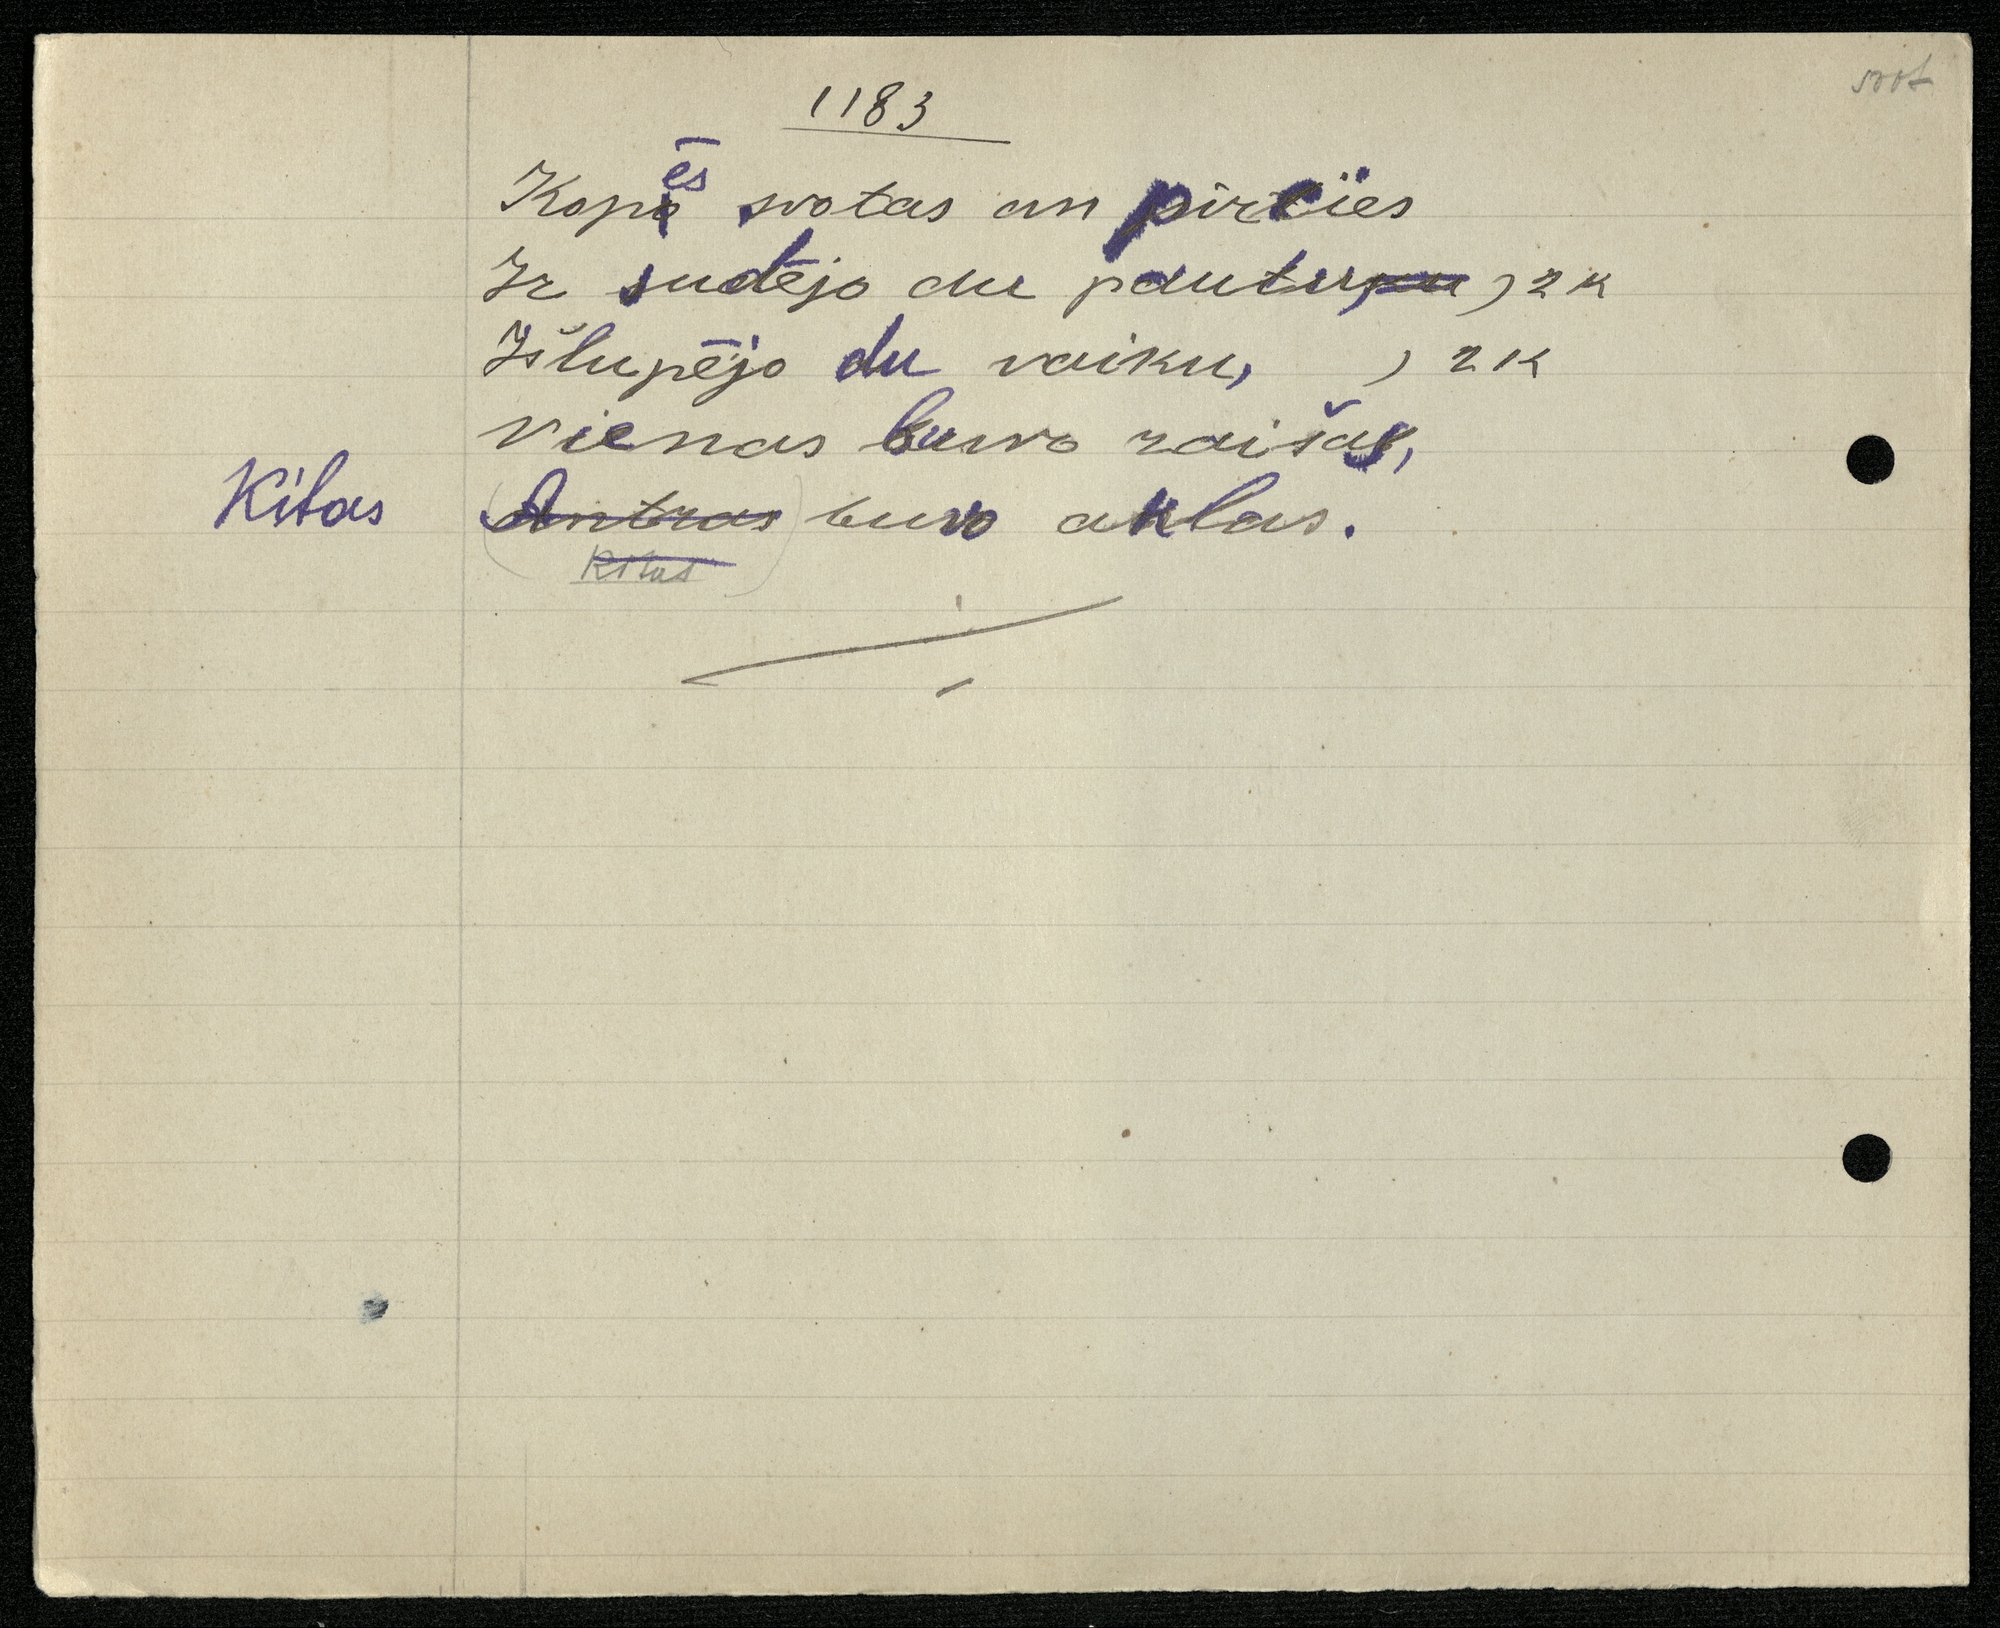 1183
Kopēs svotas an pirčies
Ir sudējo du pautu, pu ) 2 K
Išlupējo du vaiku, ) 2 K
vienas buvo raišas,
Kitas (Antras) buvo aklas.
Kitas